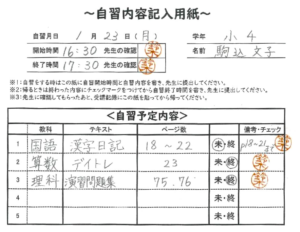 ～自習内容記入用紙～
自習月日 1月 23日(月) 学年 小4
開始時間 16:30 先生の確認 梨 名前 駒込 文子
終了時間 17:30 先生の確認 梨
※1:自習をする時はこの紙に自習開始時間と自習内容を書き、先生に提出してください。
※2:帰るときは終わった内容にチェックマークをつけてから自習終了時間を書き、先生に提出してください。
※3:先生に確認してもらったあと、受講動態にこの紙を貼ってから帰ってください。
＜自習予定内容＞
教科 テキスト ページ数 備考・チェック
1 国語 漢字日記 18～22 未・終 p18～21まで 梨
2 算数 デイトレ 23 未・終 梨
3 理科 演習問題集 75.76 未・終 梨
4 未・終
5 未・終